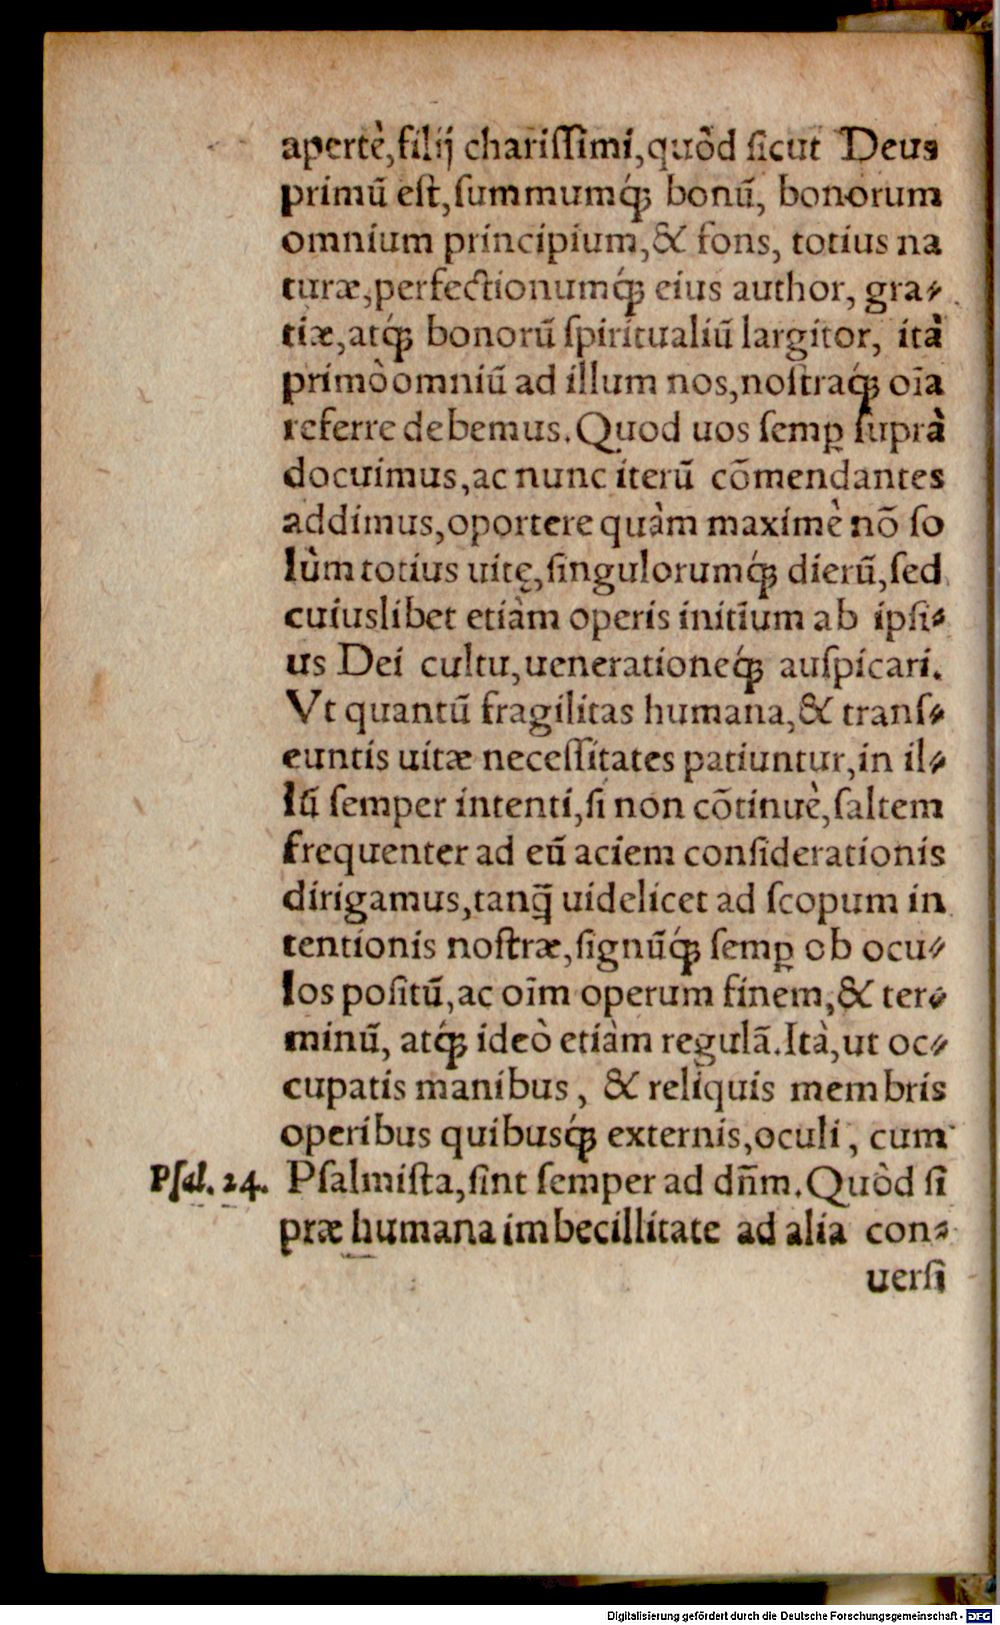 apertè, filij chariſſimi, quòd ſicut Deus
primū eſt, ſummumq́; bonū, bonorum
omnium principium, & fons, totius na
turæ, perfectionumq́; eius author, gra⸗
tiæ, atq́; bonorū ſpiritualiū largitor, ità
primò omniū ad illum nos, noſtraq́; oīa
referre debemus. Quod uos ſemp̱ ſuprà
docuimus, ac nunc iterū cōmendantes
addimus, oportere quàm maximè nō ſo
lùm totius uitę, ſingulorumq́; dierū, ſed
cuiuslibet etiàm operis initium ab ipſi⸗
us Dei cultu, uenerationeq́; auſpicari.
Vt quantū fragilitas humana, & tranſ⸗
euntis uitæ neceſſitates patiuntur, in il⸗
lū ſemper intenti, ſi non cōtinuè, ſaltem
frequenter ad eū aciem conſiderationis
dirigamus, tanq̄ uidelicet ad ſcopum in
tentionis noſtræ, ſignūq́; ſemp̱ ob ocu⸗
los poſitū, ac oīm operum finem, & ter⸗
minū, atq́; ideò etiàm regulā. Ità, ut oc⸗
cupatis manibus, & reliquis membris
operibus quibusq́; externis, oculi, cum
Pſal. 24. Pſalmiſta, ſint ſemper ad dn̄m. Quòd ſi
præ humana imbecillitate ad alia con⸗
uerſi
Digitalisierung gefördert durch die Deutsche Forschungsgemeinschaft - DFG